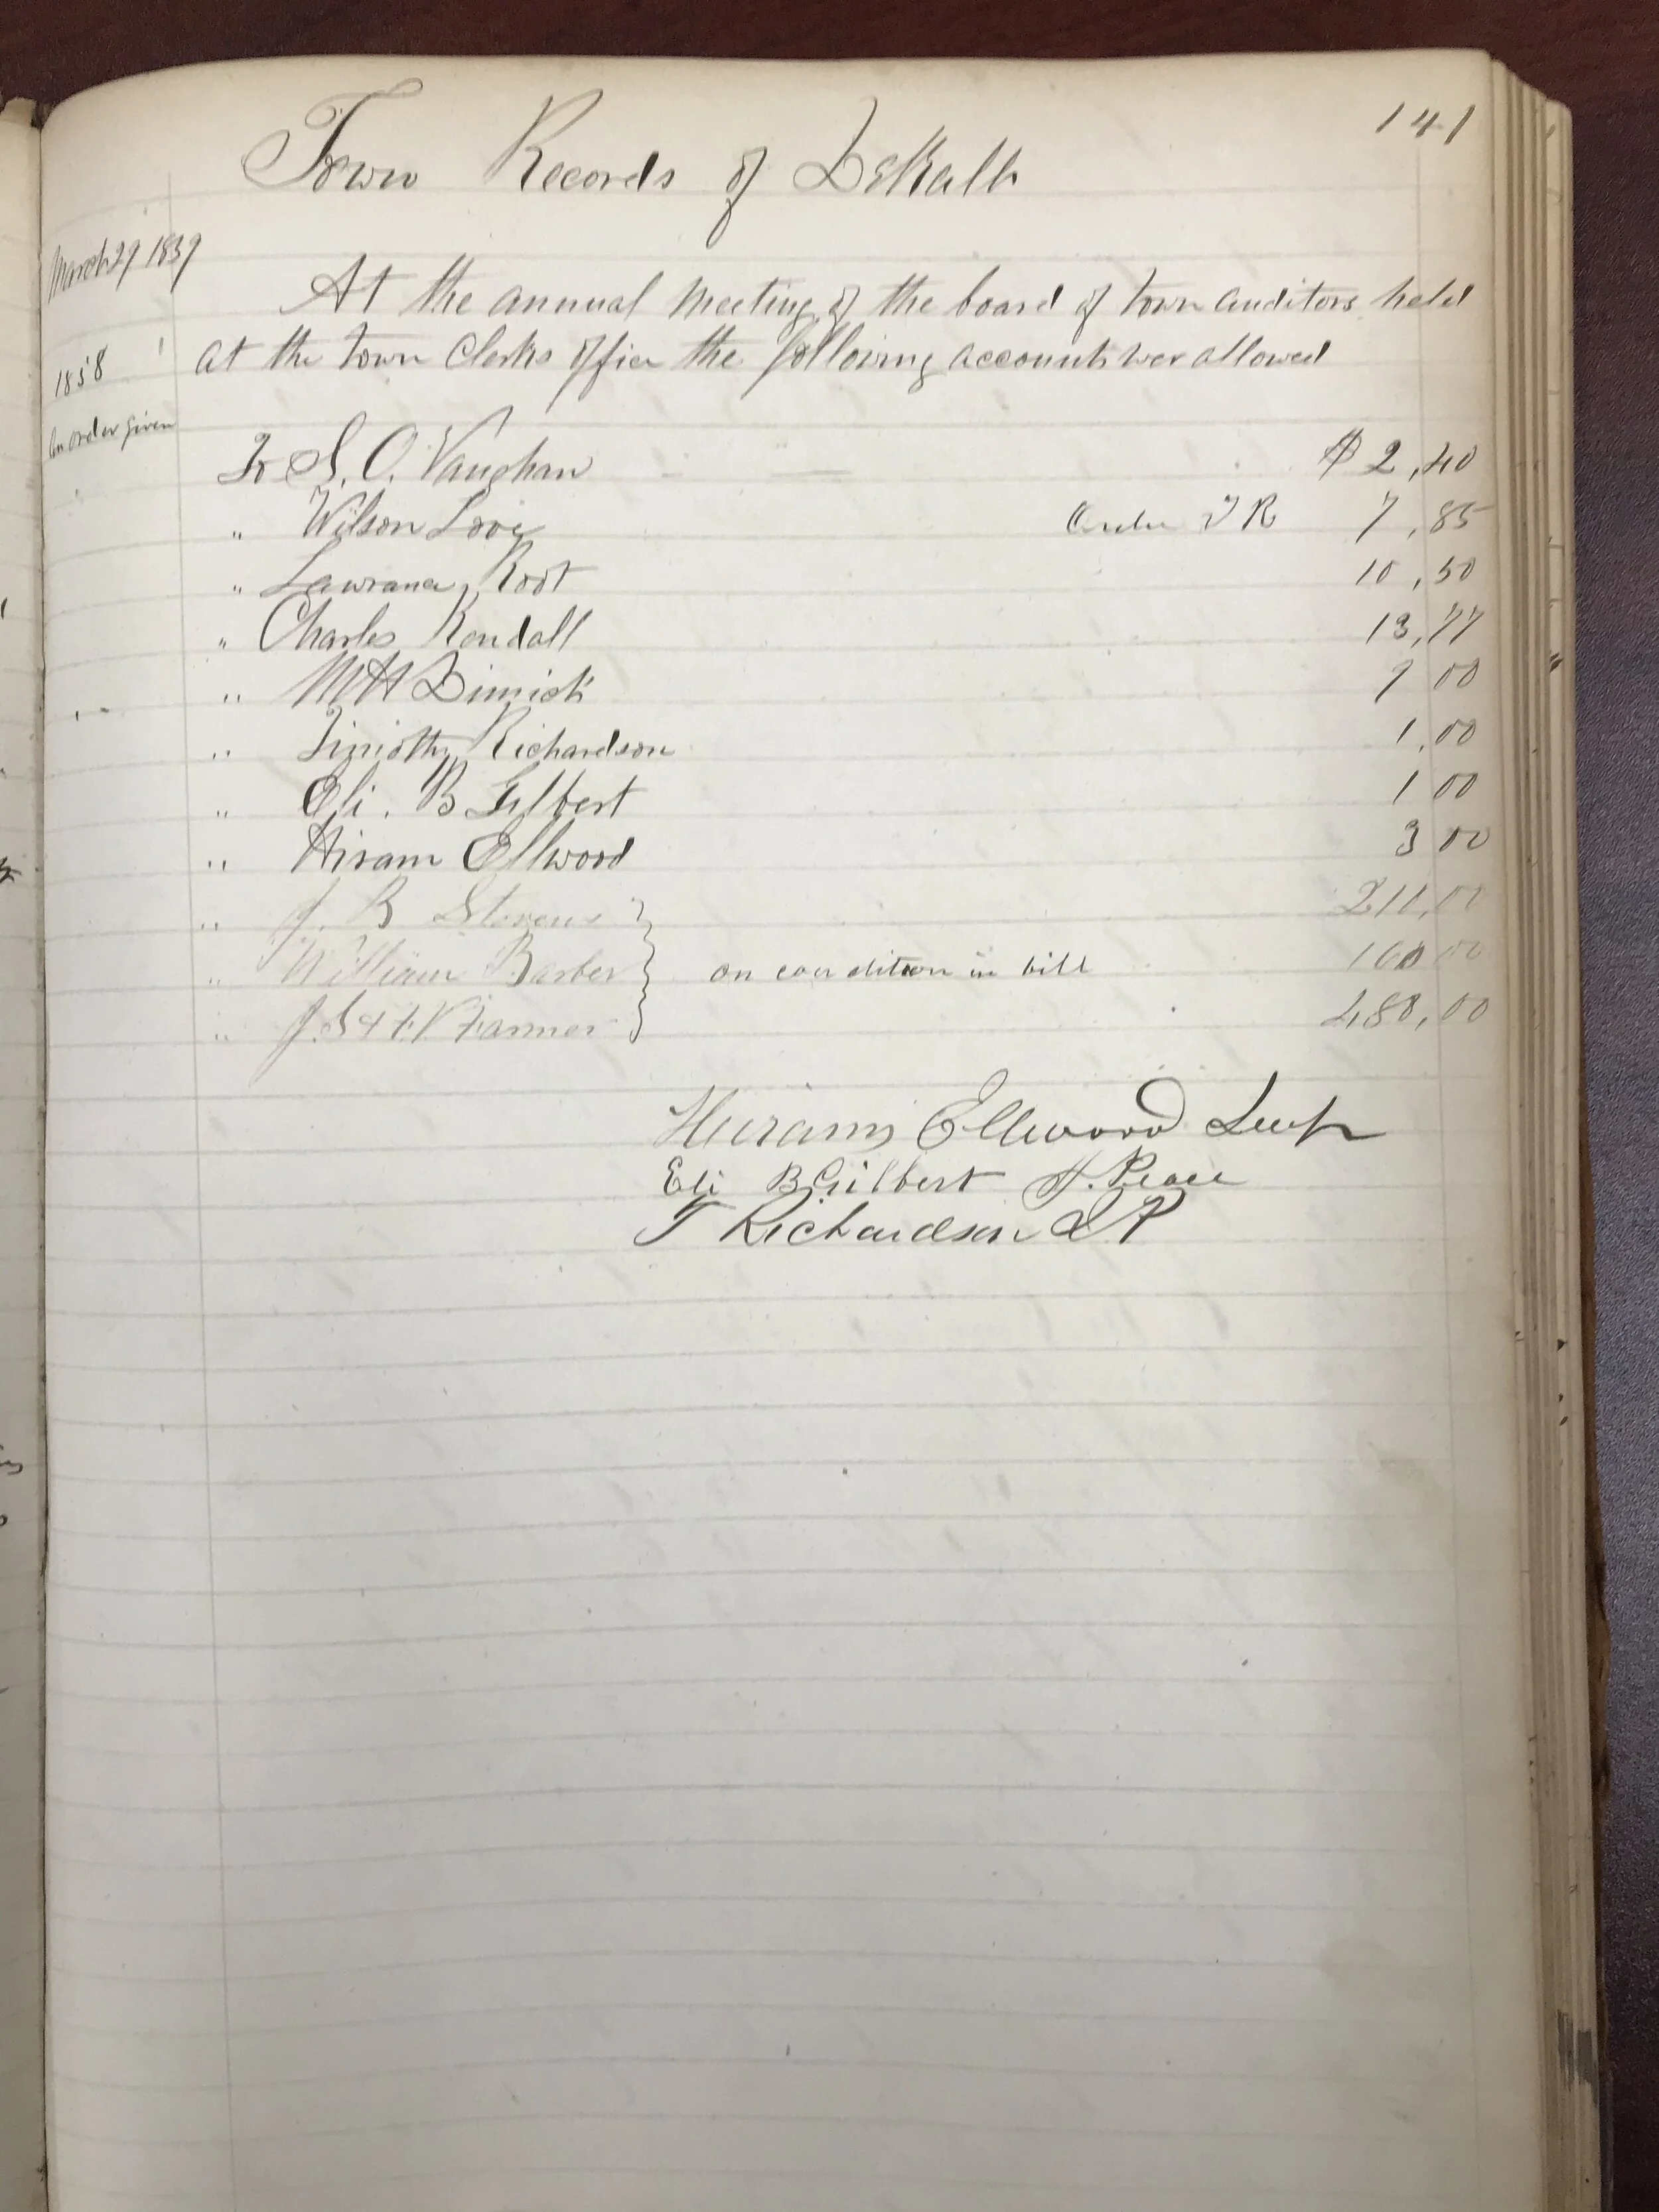 141
Town Records of DeKalb
March 29 1859
At the annual meeting of the board of town auditors held
1858
at the town Clerks office the following accounts wer allowed
An order given
To S. O. Vaughan $ 2,40
" Wilson Love Order T R 7,85
" Lawrance Root 10,50
" Charles Kendall 13,77
" M H Dimick 00
" Timothy Richardson 1,00
" Eli. B Gilbert 1 00
" Hiram Ellwood 3 00
" J. B Stevens
" William Barber on condition in bill 160 00
" J. S & F. V. Farmer 480,00
Hiram Ellwood Sup
Eli B Gilbert J. Peace
T Richardson J P